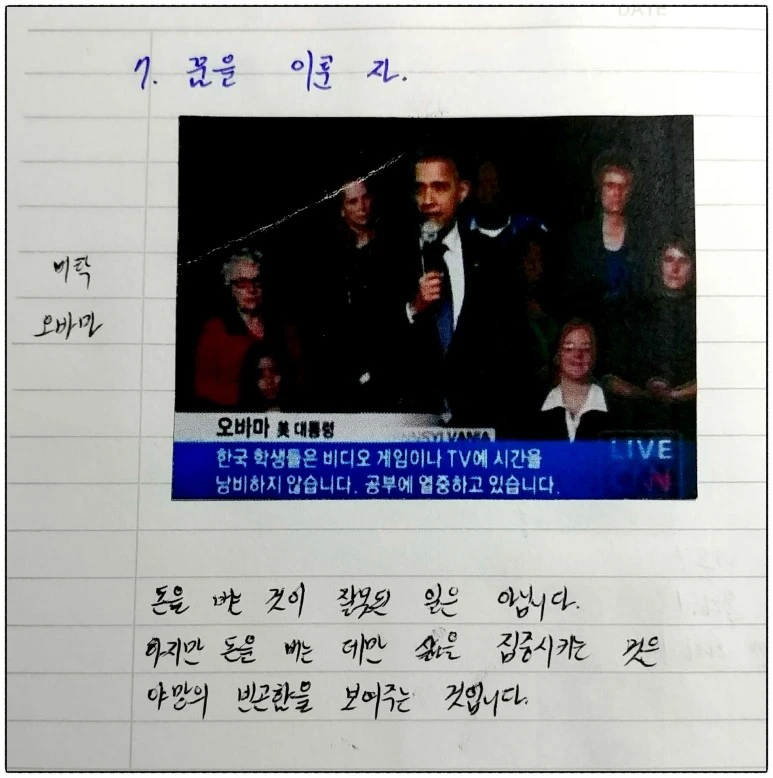 DATE
7. 꿈을 이룬 자.
버락
오바마
오바마 美 대통령
NSYLVANIA
한국 학생들은 비디오 게임이나 TV에 시간을
낭비하지 않습니다. 공부에 열중하고 있습니다.
LIVE
돈을 버는 것이 잘못된 일은 아닙니다.
하지만 돈을 버는 데만 삶을 집중시키는 것은
야망의 빈곤함을 보여주는 것입니다.